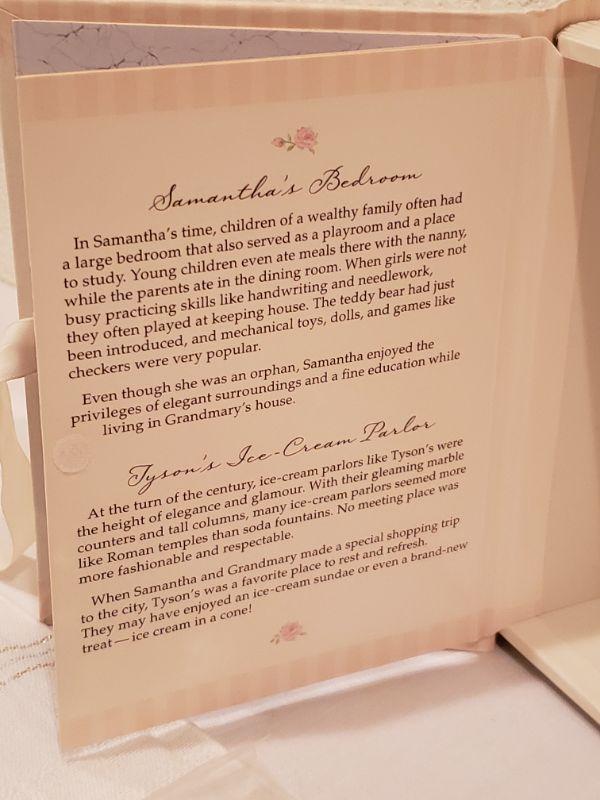 Samantha's Bedroom
In Samantha's time, children of a wealthy family often had
a large bedroom that also served as a playroom and a place
to study. Young children even ate meals there with the nanny,
while the parents ate in the dining room. When girls were not
busy practicing skills like handwriting and needlework,
they often played at keeping house. The teddy bear had just
been introduced, and mechanical toys, dolls, and games like
checkers were very popular.
Even though she was an orphan, Samantha enjoyed the
privileges of elegant surroundings and a fine education while
living in Grandmary's house.
Tyson's Ice-Cream Parlor
At the turn of the century, ice-cream parlors like Tyson's were
the height of elegance and glamour. With their gleaming marble
counters and tall columns, many ice-cream parlors seemed more
like Roman temples than soda fountains. No meeting place was
more fashionable and respectable.
When Samantha and Grandmary made a special shopping trip
to the city, Tyson's was a favorite place to rest and refresh.
They may have enjoyed an ice-cream sundae or even a brand-new
treat—ice cream in a cone!